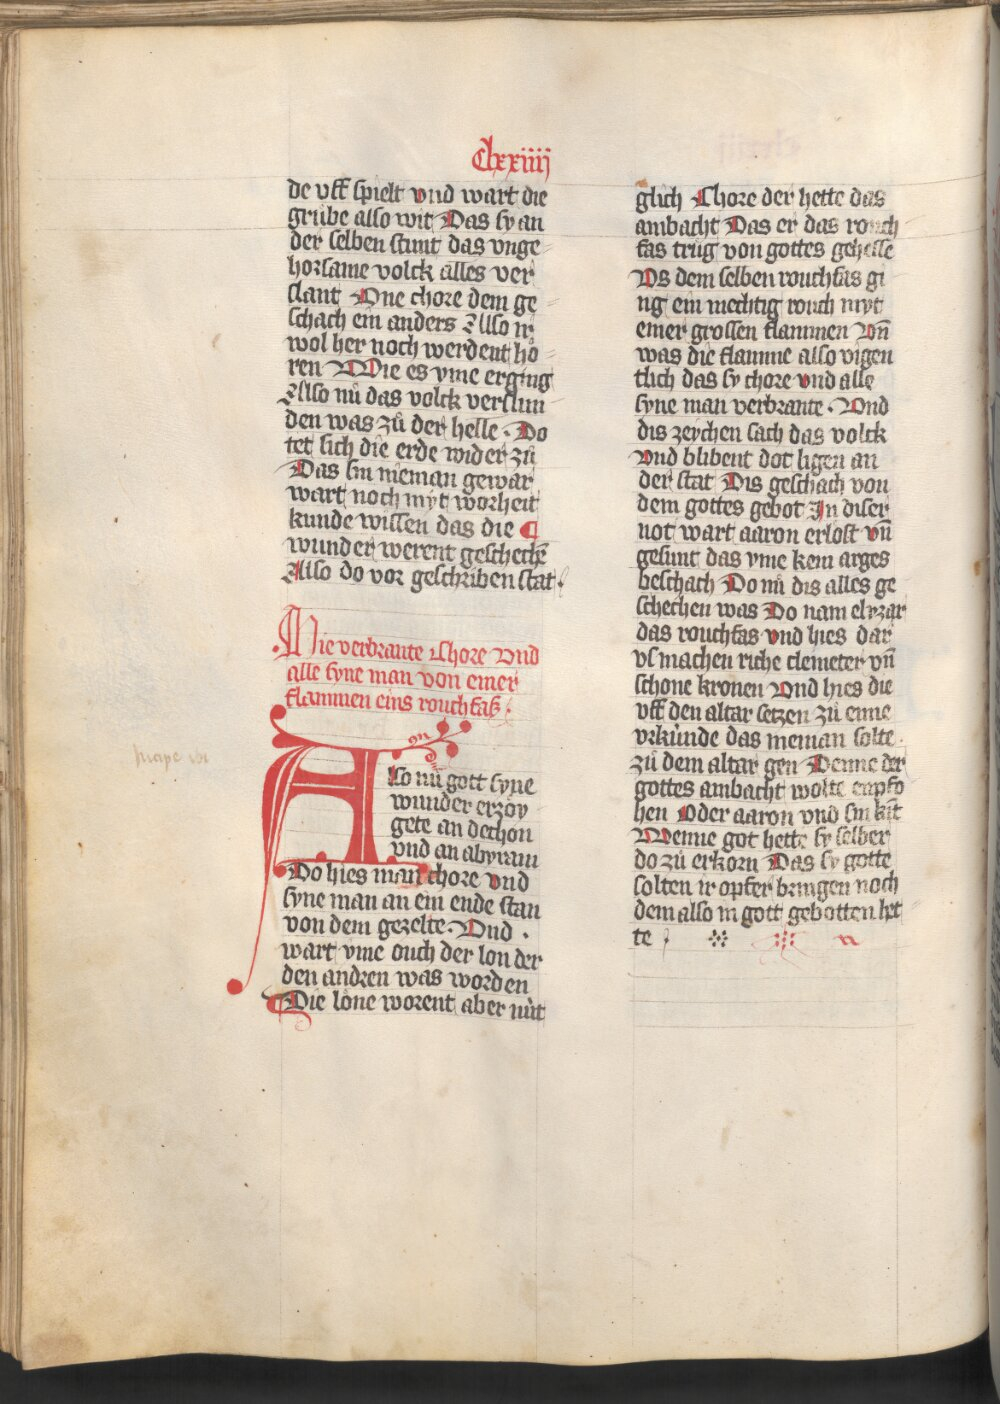 Clxxiiij
de vff spielt vnd wart die
grůbe also wit Das sy an
der selben stunt das vnge-
horsame volck alles ver
slant One chore dem ge-
schach ein anders Also ir
wol her noch werdent hö-
ren Wie es yme erging
Also nů das volck verslun-
den was zů der helle · Do
tet sich die erde wider zů
Das sin nieman gewar
wart noch myt worheit
kunde wissen das die
wunder werent geschechē
Also do vor geschriben stat
Hie verbrante Chore vnd
alle syne man von einer
flammen eins rouchfaß ·
Also nů gott syne
wunder erzöy
gete an dathon
vnd an abyram
Do hies man chore vnd
syne man an ein ende stan
von dem gezelte · Vnd ·
wart yme ouch der lon der
den andren was worden
Die löne worent aber nüt
glich Chore der hette das
ambacht Das er das rouch
fas trůg von gottes geheisse
Vs dem selben rouchfas gi
ng ein mechtig rouch myt
einer grossen flammen Vn̄
was die flamme also vigen
tlich das sy chore vnd alle
syne man verbrante · Vnd
dis zeychen sach das volck
Vnd blibent dot ligen an
der stat Dis geschach von
dem gottes gebot In diser
not wart aaron erlost vn̄
gesunt das yme kein arges
beschach Do nů dis alles ge
schechen was Do nam elyzar
das rouchfas vnd hies dar
vs machen riche cleineter vn̄
schone kronen Vnd hies die
vff den altar setzen zů eime
vrkůnde das nieman solte
zů dem altar gen Denne der
gottes ambacht wolte enpfo
hen Oder aaron vnd sin kīt
Wenne got hette sy selber
do zů erkorn Das sy gotte
solten ir opfer bringen noch
dem also in gott gebotten het
te